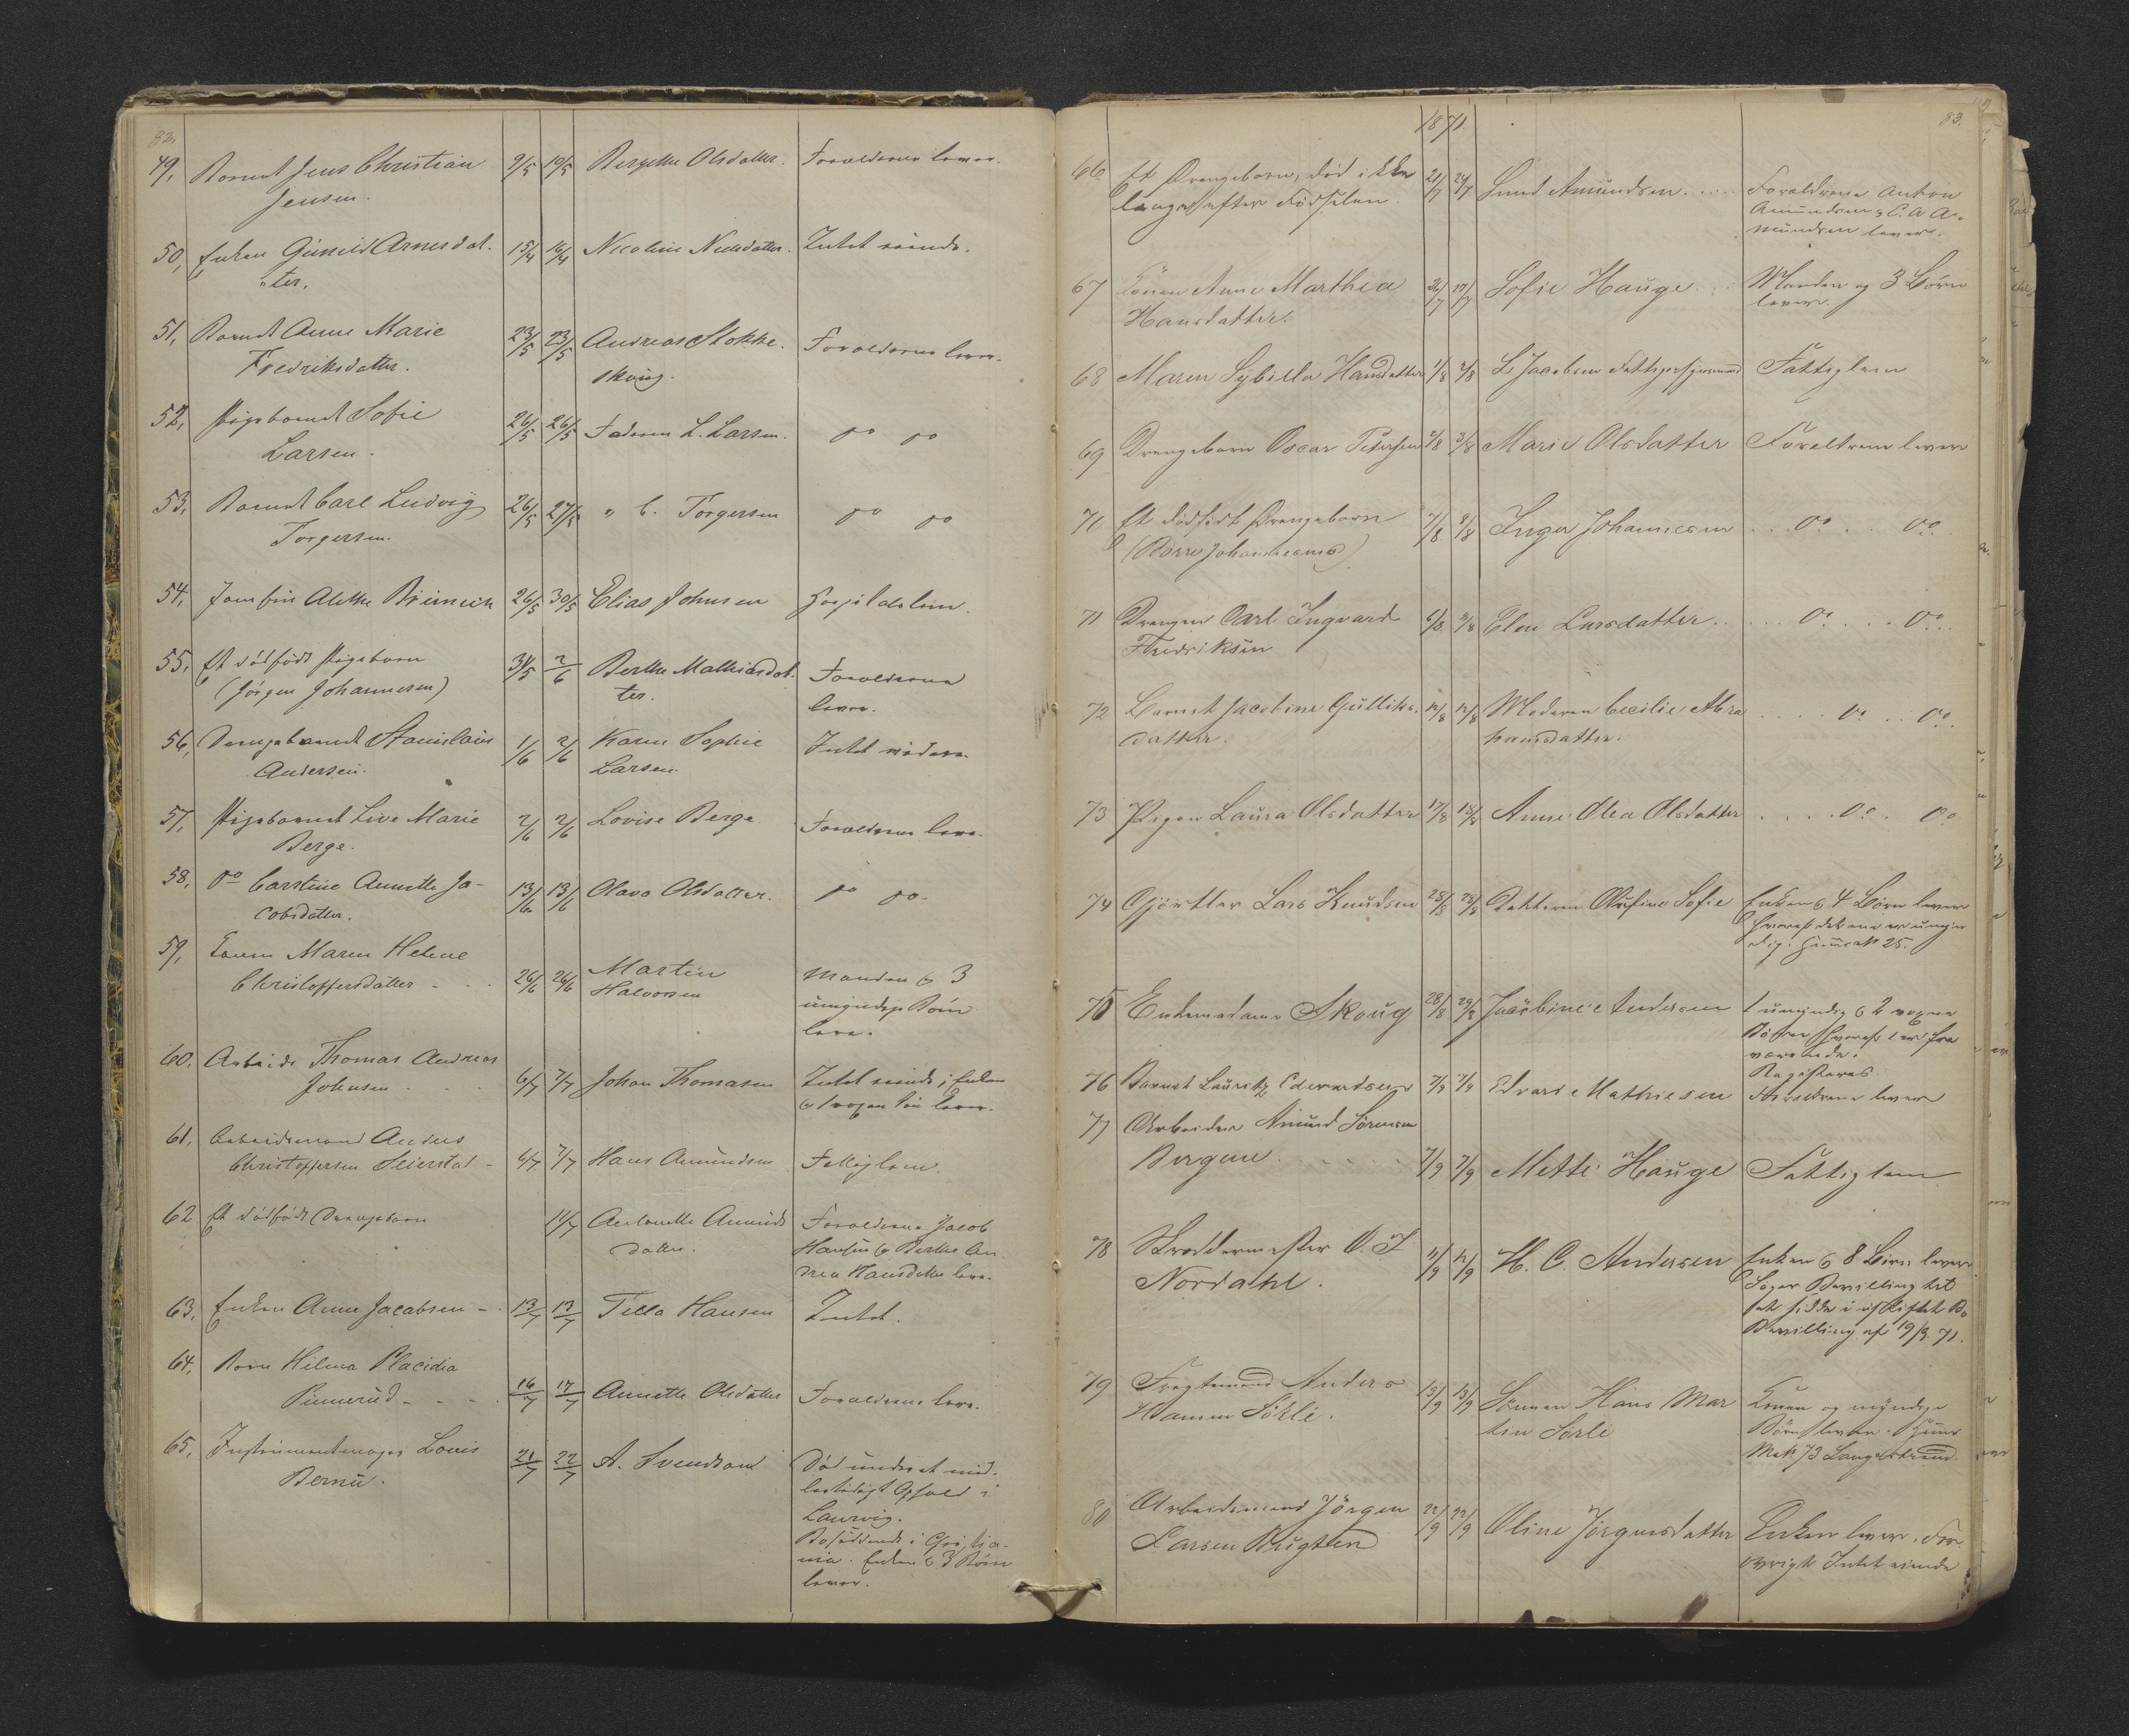 82.
49, Barnet Jens Christian 9/5 10/5 Bergitte Olsdatter. Forældrene lever.
Jensen.
50, Enken Gunild Arnesdat- 15/4 16/4 Nicoline Nielsdatter. Intet eiende.
ter.
51, Barnet Anne Marie 23/5 23/5 Andreas Stokke- Forældrene lever.
Fredriksdatter. skoug.
52, Pigebarnet Sofie 26/5 26/5 Faderen L. Larsen. do do
Larsen.
53, Barnet Carl Ludvig 26/5 27/5 " C. Torgersen do do
Torgersen.
54, Jomfru Alethe 26/5 30/5 Elias Johnsen Hospitalslem.
55, Et dødfødt Pigebarn 31/5 2/6 Berthe Mathiasdat- Forældrene
(Jörgen Johannesen) ter. lever.
56, Drengebarnet Stanislaus 1/6 2/6 Karen Sophie Intet
Andersen. Larsen.
57, Pigebarnet Live Marie 2/6 2/6 Lovise Berge Forældrene leve.
Berge.
58, do Carstine Annette Ja- 13/6 13/6 Olava Olsdatter. do do.
cobsdatter.
59, Konen Maren Helene
Christoffersdatter - 26/6 26/6 Martin Halvorsen Manden & 3
umyndige Børn
leve.
60, Arbeider Thomas Andreas
Johnsen 6/7 7/7 Johan Thomasen Intet eiende, Enken
& 1 voxen Søn lever.
61, Arbeidsmand Anders
Christoffersen Seierstad - 4/7 7/7 Hans Amundsen Fattiglem.
62 Et dødfødt Drengebarn 11/7 Antonette Amunds Forældrene Jacob
datter. Hansen & Berthe An-
drea Hansdatter leve.
63, Enken Anne Jacobsen - 13/7 13/7 Tilla Hansen Intet.
64, Barn Hilma Placidia
Pinnerud - - - 16/7 17/7 Annette Olsdatter Forældrene leve.
65, Instrumentmager Louis 21/7 22/7 A. Svendsen Død under et mid-
lertidigt Ophold i
Laurvig.
Bosiddende i Christia-
nia. Enken & 3 Børn
lever.
1871
83.
66 Et Drengebarn, død ikke 21/7 24/7 Gund Amundsen Forældrene Anton
længe efter Födselen Amundsen & C. A A-
mundsen lever.
67 Konen Anne Marthea 26/7 27/7 Sofie Hauge Manden og 3 Börn
Hansdatter. lever.
68 Maren Sÿbilla Hansdatter 1/8 2/8 L Jacobsen Fattiglem
69 Drengebarn Oscar Petersen 2/8 3/8 Marie Olsdatter Foreldrene lever
70 Et dödfödt Drengebarn 7/8 8/8 Inger Johannesen do do
71 Drengen Carl Ingvard 6/8 9/8 Elen Larsdatter do do
Fredriksen
72 Barnet Jacobine Gulliks- 12/8 12/8 Moderen Cecilie Abra do do
datter. hamsdatter.
73 Pigen Laura Olsdatter 17/8 18/8 Anne Olea Olsdatter do do
74 Gjörtler Lars Knudsen 28/8 28/8 Datteren Olufine Sofie Enken & 4 Börn lever
hvoraf det ene er umyn
dig.
75 Enkemadame Skoug 28/8 29/8 Jacobine Andersen 1 umyndig & 2 voxne
Döttre hvoraf 1 er fra
værende.
Registeres
76 Barnet Lauritz Edvardsen 7/9 7/9 Edvard Mathiesen Foreldrene lever
77 Arbeider Amund Sörensen
Bergene 7/9 7/9 Mette Hauge Fattiglem
78 Skreddermester O. J 11/9 12/9 H. C. Andersen Enken & 8 Börn lever
Nordahl. Söger Bevilling til
at sidde i uskiftet Bo
Bevilling af 19/9. 71.
79 Fragtemand Anders 13/9 13/9 Sönnen Hans Mar Konen og myndige
Hansen Sörlie. tin Sörlie Börn lever.
Mat. 73 Langestrand.
80 Arbeidsmand Jörgen 22/9 22/9 Oline Jörgensdatter Enken lever, For
Larsen övrigt Intet eiende